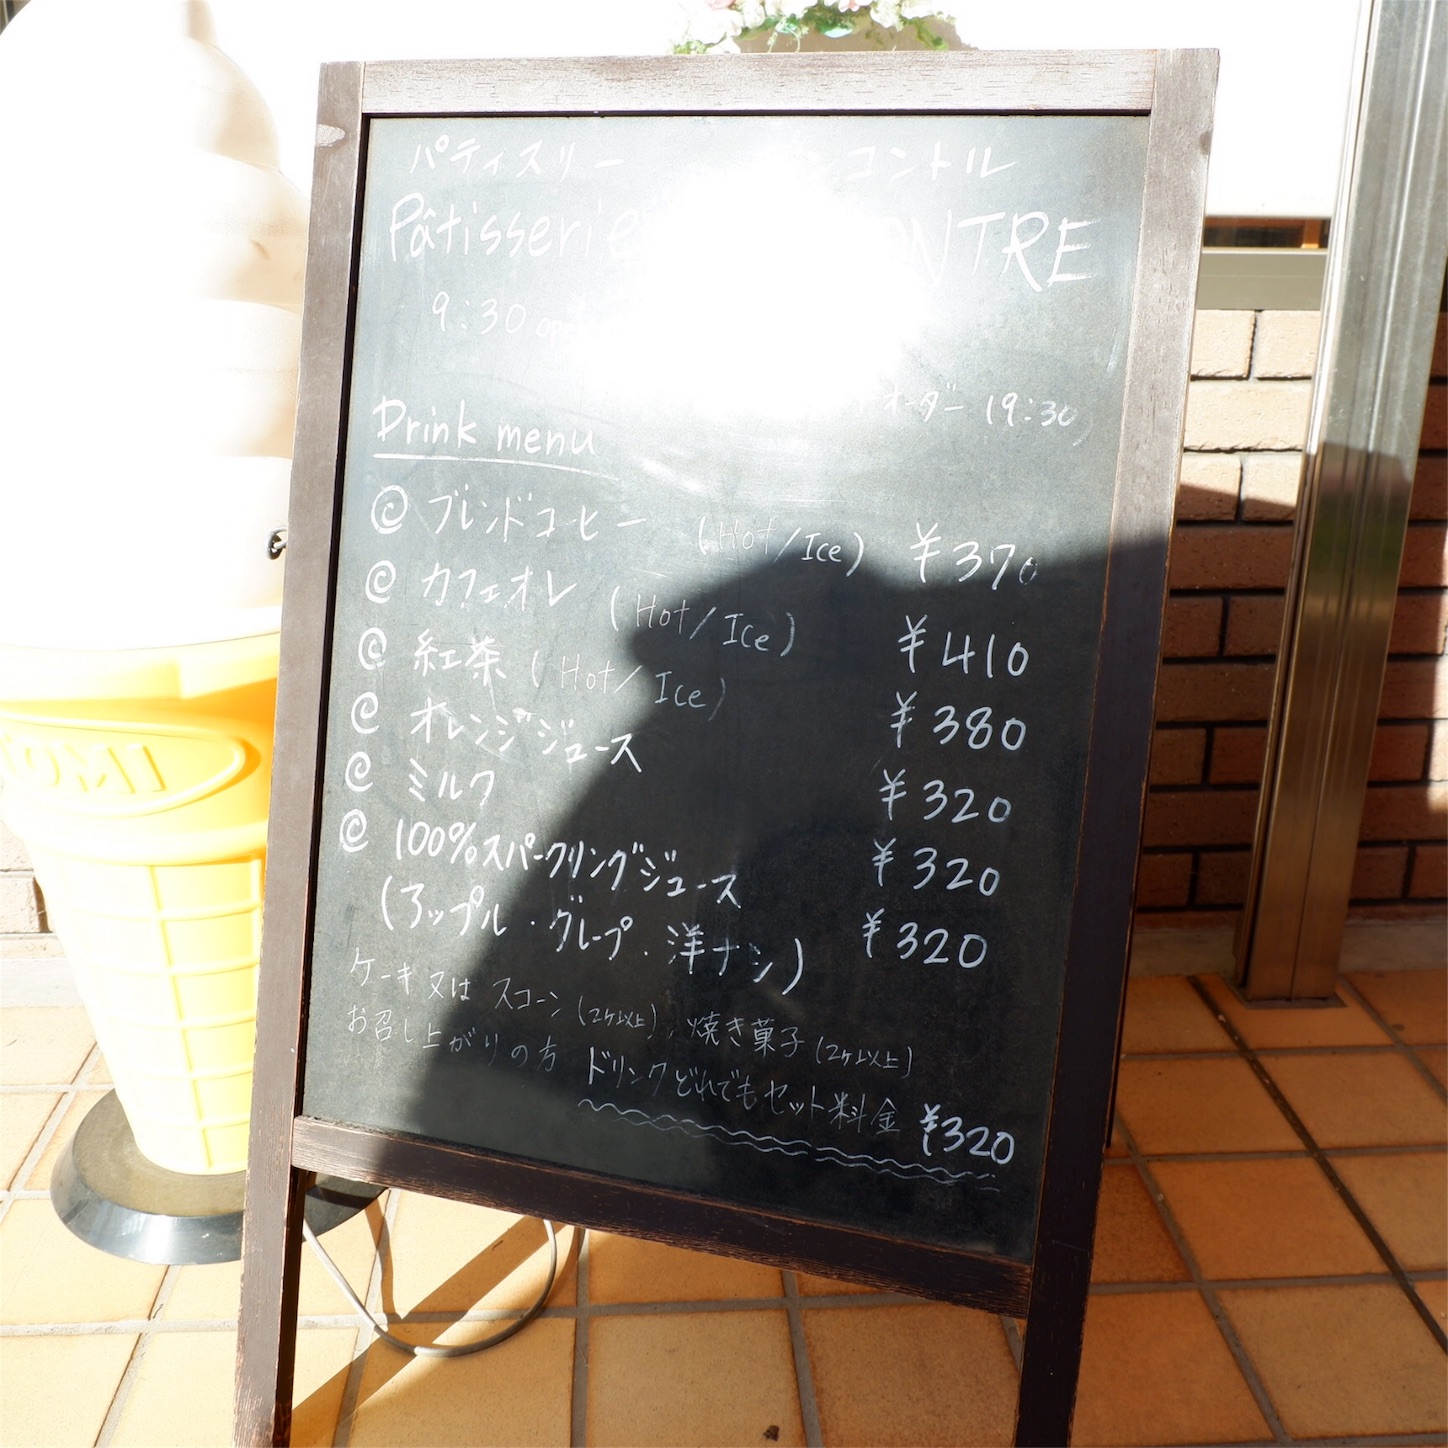 パティスリー コントル
Pâtisserie ONTRE
9:30
オーダー 19:30)
Drink menu
@ ブレンドコーヒー (Hot/Ice) ¥370
@ カフェオレ (Hot/Ice) ¥410
@ 紅茶 (Hot/Ice) ¥380
@ オレンジジュース ¥320
@ ミルク ¥320
@ 100%スパークリングジュース ¥320
(アップル・グレープ・洋ナシ)
ケーキ又は スコーン(2ケ以上)、焼き菓子(2ケ以上)
お召し上がりの方 ドリンクどれでもセット料金 ¥320